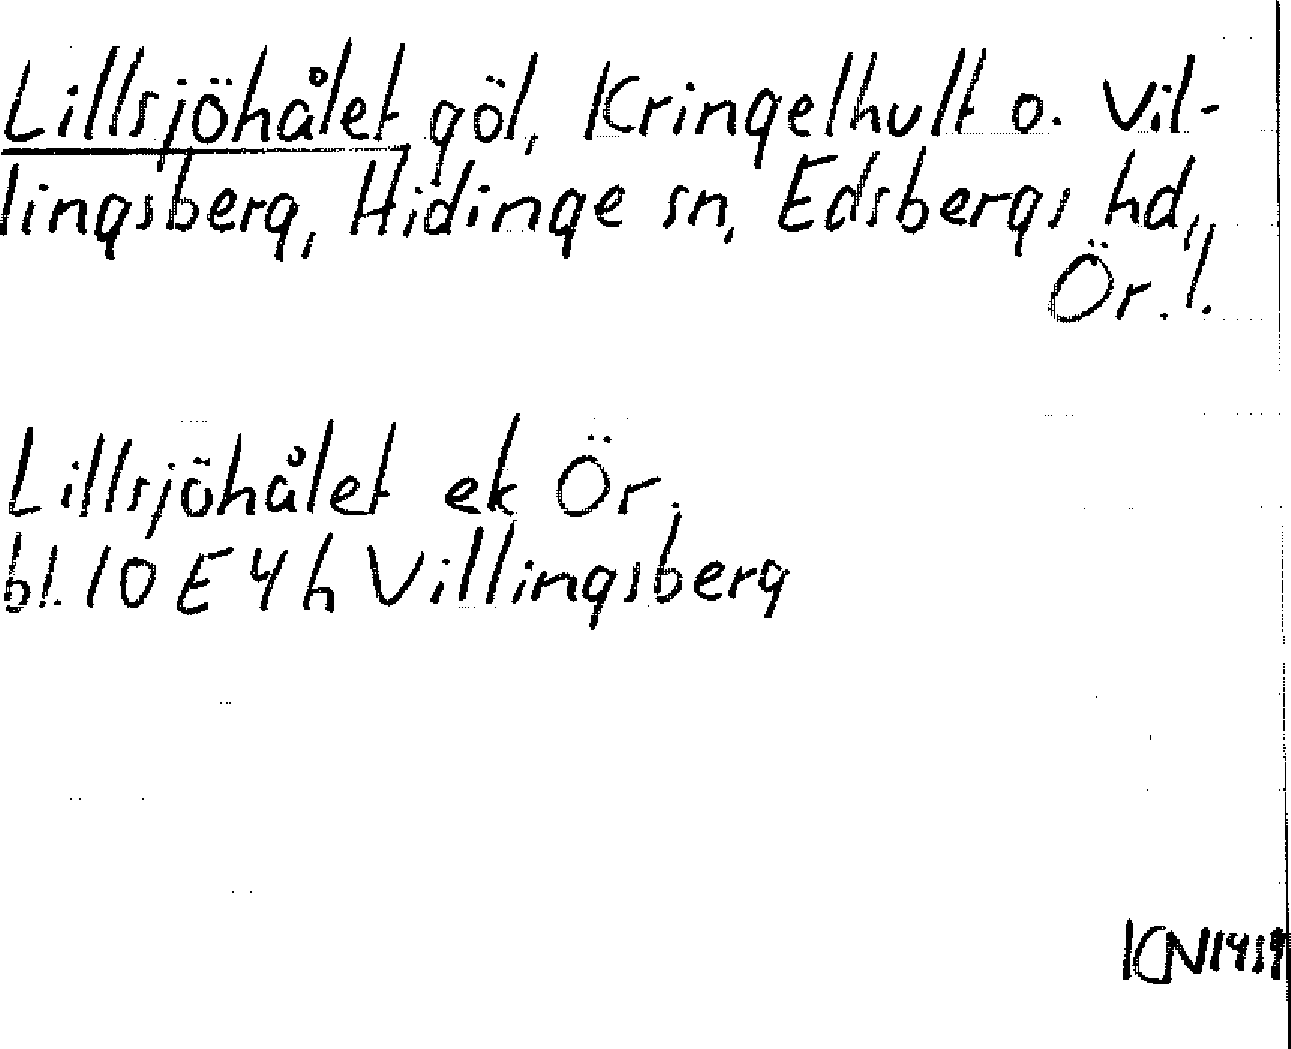 Lillsjöhålet göl, Kringelhult o. Vil-
lingsberg, Hidinge sn, Edsbergs hd,
Ör. l.
Lillsjöhålet ek Ör.
bl. 10 E 4 h Villingsberg